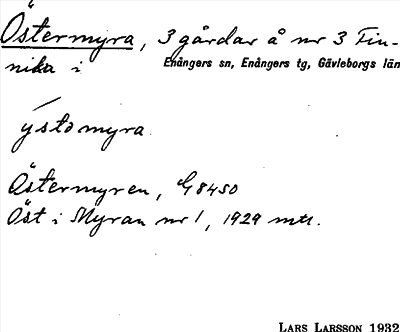 Östermyra, 3 gårdar å nr 3 Fin-
nika i Enångers sn, Enångers tg, Gävleborgs län
ýstomyra
Östermyren, G8450
Öst i Myran nr 1, 1929 mtl.
LARS LARSSON 1932